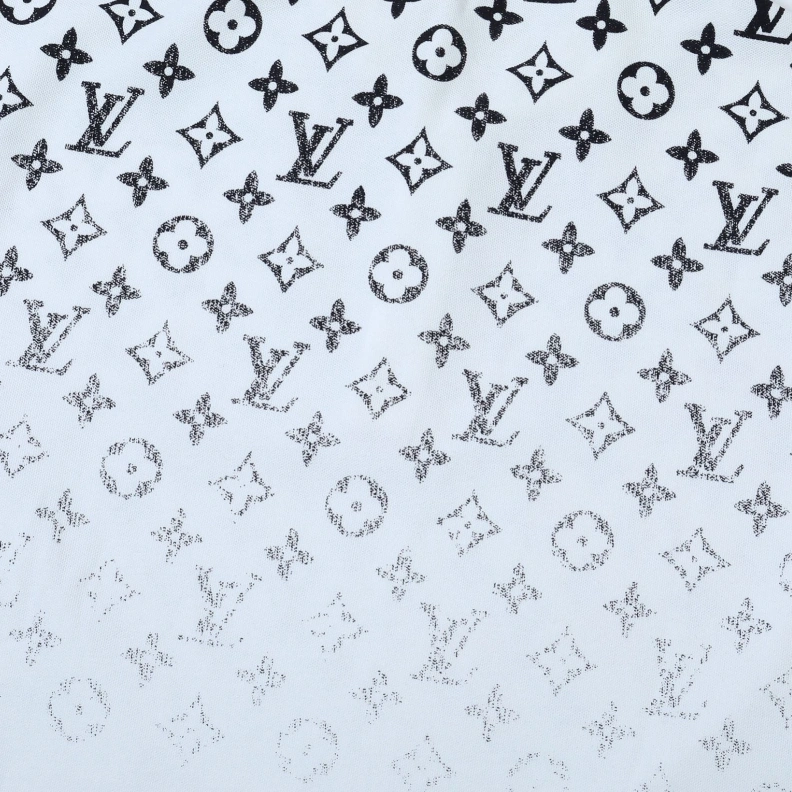 LV
LV
LV
LV
LV
LV
LV
LV
LV
LV
LV
LV